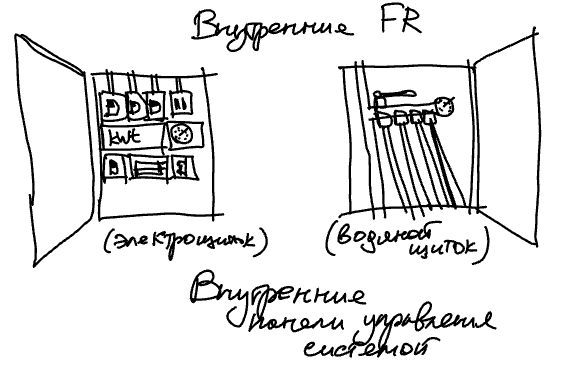 Внутренние FR
kWt
(электрощиток)
(водяной
щиток)
Внутренние
панели управления
системой